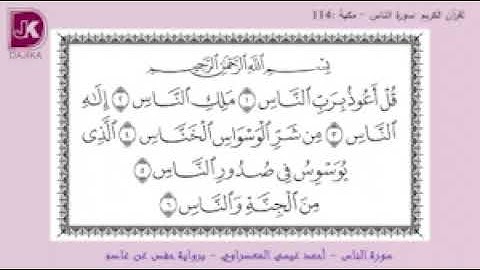 القرآن الكريم :سورة الناس - مكية :114
JK
DAJKA
بِسْمِ اللَّهِ الرَّحْمَٰنِ الرَّحِيمِ
قُلْ أَعُوذُ بِرَبِّ النَّاسِ ١ مَلِكِ النَّاسِ ٢ إِلَٰهِ
النَّاسِ ٣ مِن شَرِّ الْوَسْوَاسِ الْخَنَّاسِ ٤ الَّذِي
يُوَسْوِسُ فِي صُدُورِ النَّاسِ ٥
مِنَ الْجِنَّةِ وَالنَّاسِ ٦
سورة الناس - أحمد عيسي المعصراوي - برواية حفص عن عاصم